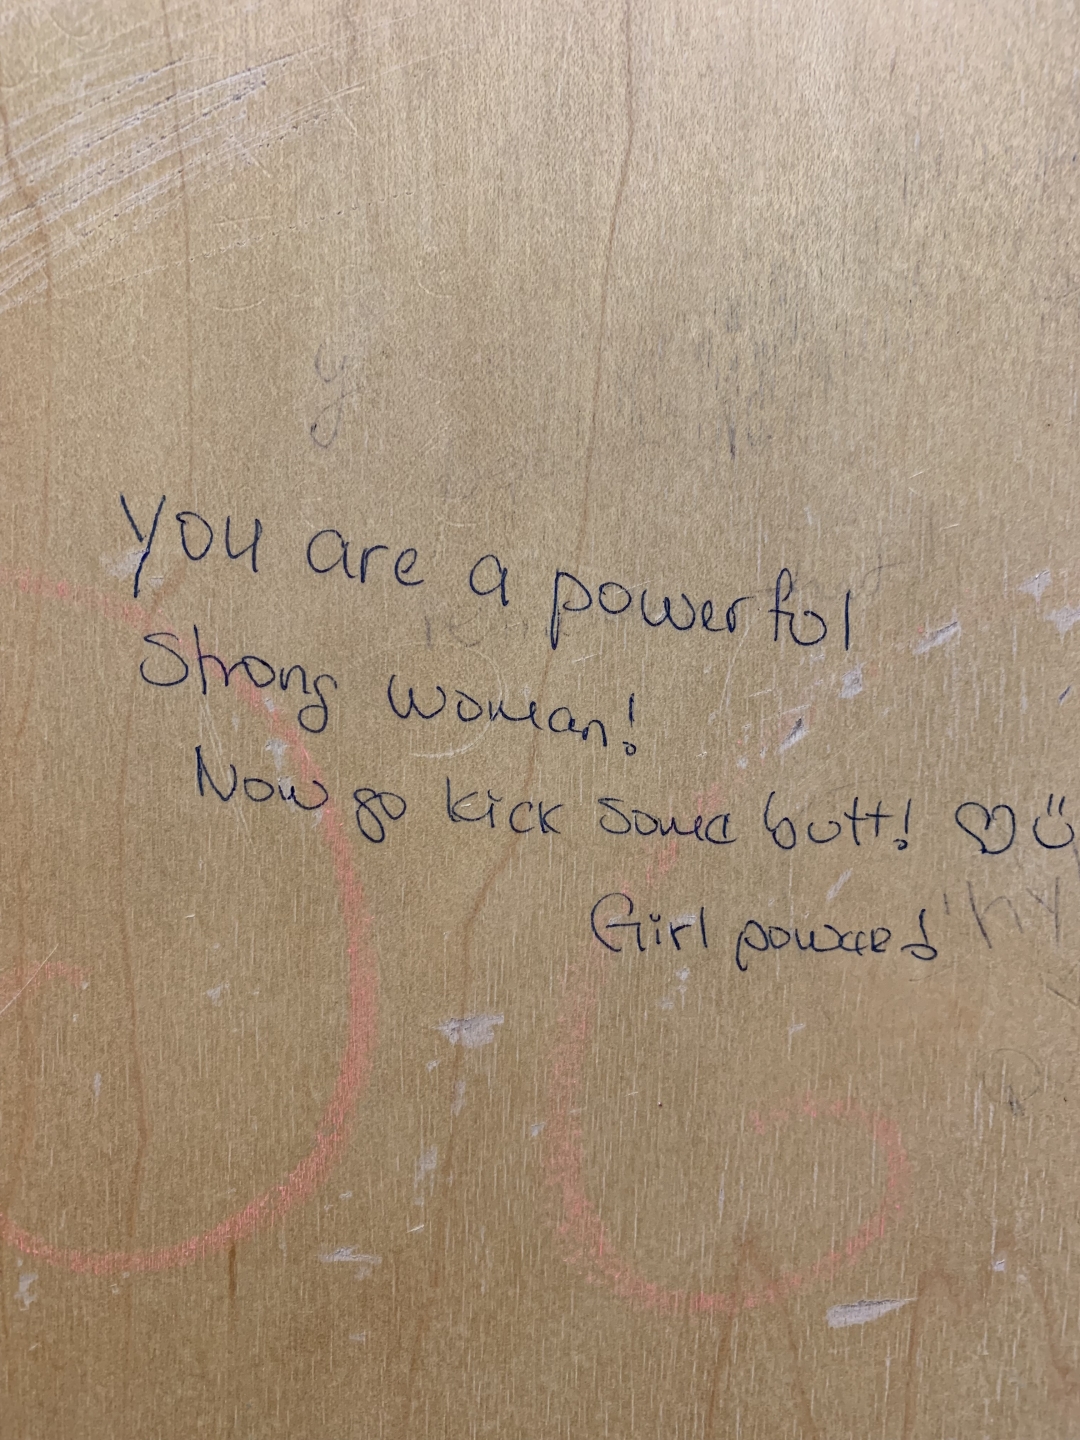 You are a powerful
Strong woman!
Now go kick some butt! ♡ ü
Girl power!